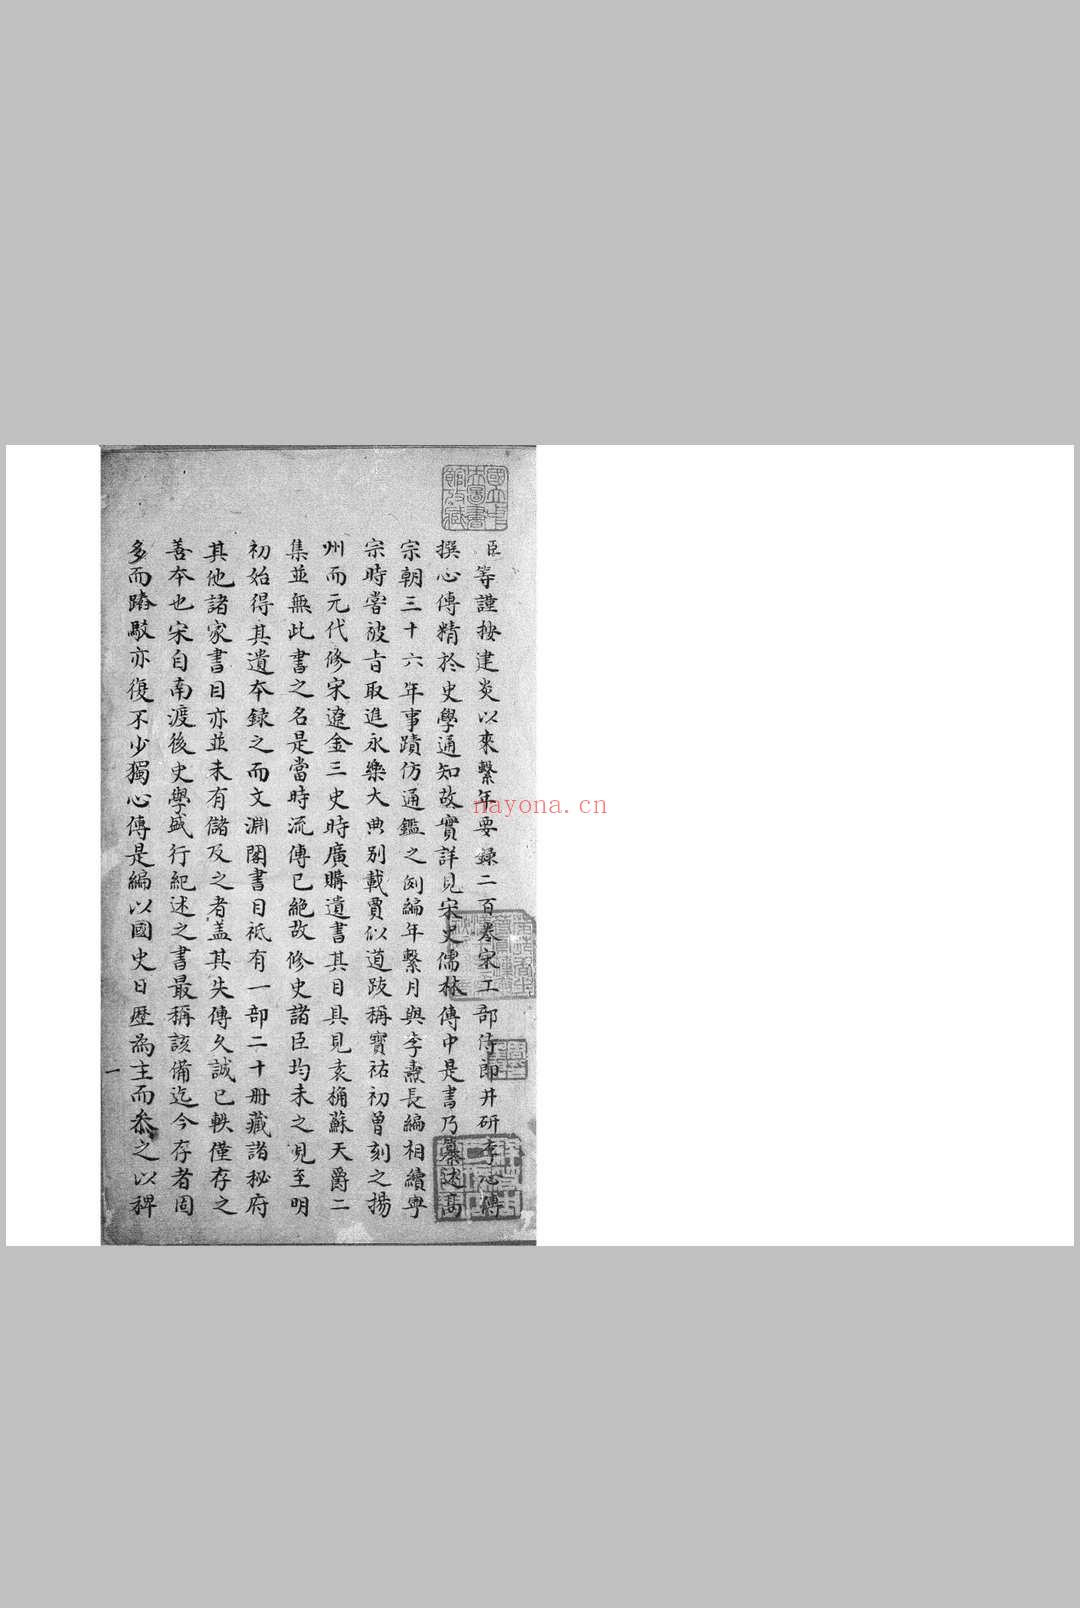 臣等謹按建炎以來繫年要錄二百卷宋工部侍郎井研李心傳
撰心傳精於史學通知故實詳見宋史儒林傳中是書乃纂述髙
宗朝三十六年事蹟仿通鑑之例編年繫月與李燾長編相續寧
宗時嘗被旨取進永樂大典別載賈似道跋稱寳祐初曾刻之揚
州而元代修宋遼金三史時廣購遺書其目具見袁桷蘇天爵二
集並無此書之名是當時流傳已絶故修史諸臣均未之見至明
初始得其遺本録之而文淵閣書目祗有一部二十冊藏諸秘府
其他諸家書目亦並未有儲及之者盖其失傳久誠已軼僅存之
善本也宋自南渡後史學盛行紀述之書最稱該備迄今存者固
多而踳駁亦復不少獨心傳是編以國史日歷為主而叅之以稗
一
國立中央圖書館收藏
nayona.cn